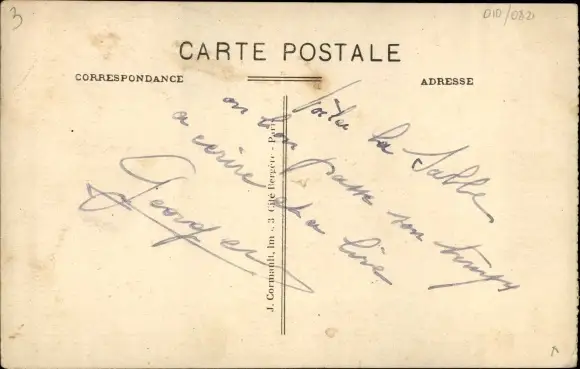 3
D10/082
CARTE POSTALE
CORRESPONDANCE
ADRESSE
Voila la Salle
ou l'on passe son temps
a ecrire et a lire
Georges
J. Cormault, Im . 3 Cité Bergère - Paris